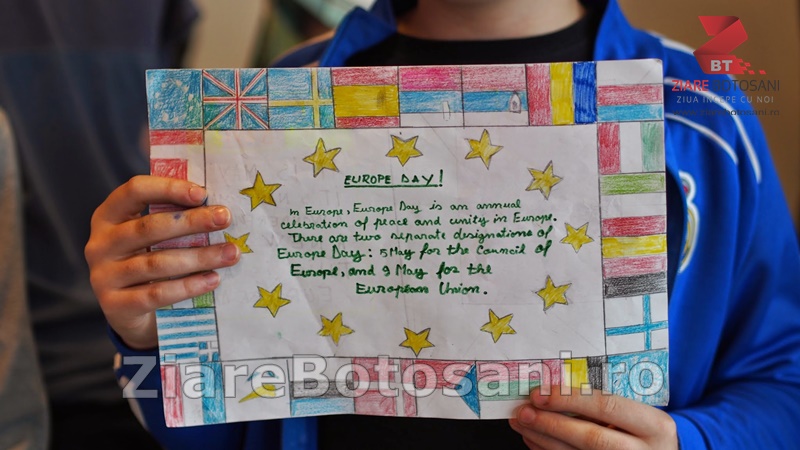 BT
ZIARE BOTOSANI
ZIUA INCEPE CU NOI
EUROPE DAY!
In Europe, Europe Day is an annual
celebration of peace and unity in Europe.
There are two separate designations of
Europe Day: 5 May for the Council of
Europe, and 9 May for the
European Union.
ZiareBotosani.ro